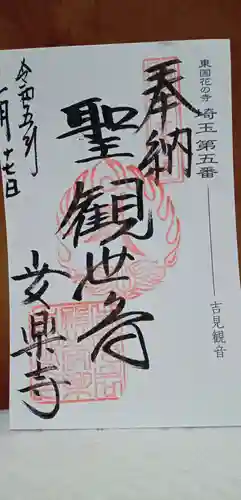 東国花の寺 埼玉 第五番
吉見観音
奉納
聖観世音
安楽寺
令和五年
月十七日